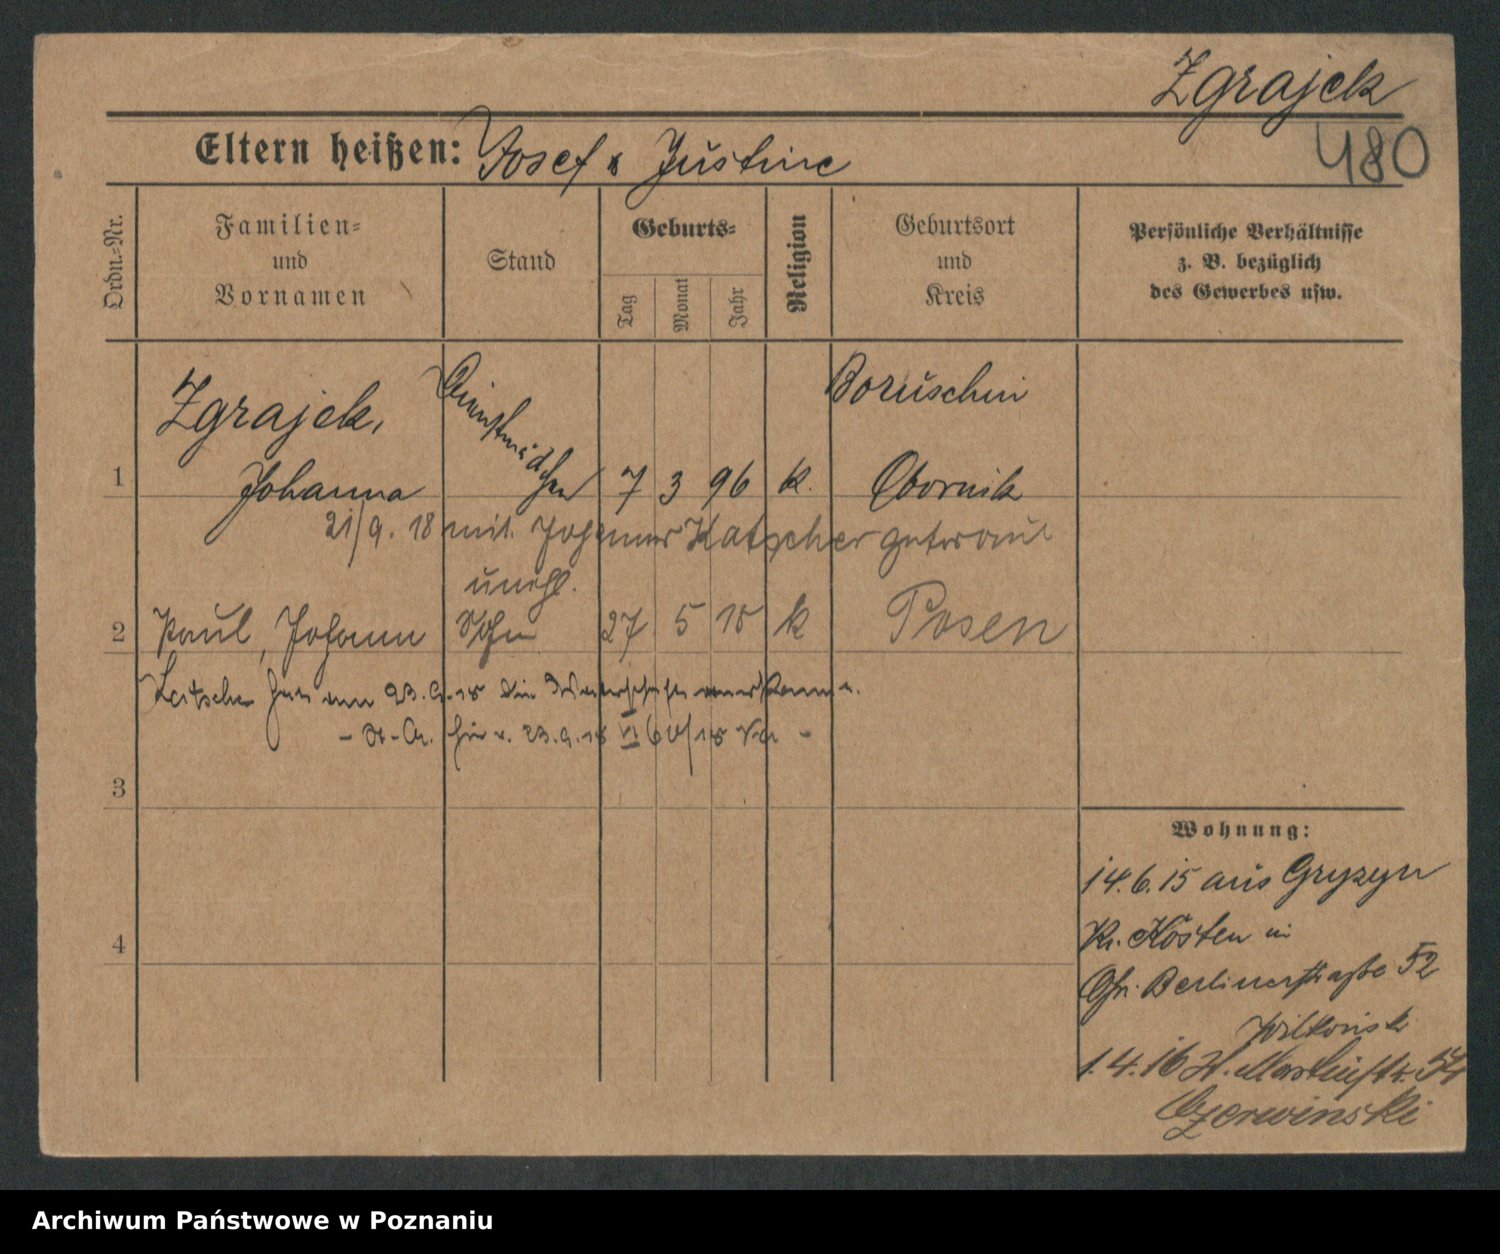 Zgrajek
480
Eltern heißen: Josef & Justine
Ordn.-Nr.
Familien-
und
Vornamen
Stand
Geburts-
Tag
Monat
Jahr
Religion
Geburtsort
und
Kreis
Persönliche Verhältnisse
z. B. bezüglich
des Gewerbes usw.
Zgrajek,
Dienstmädchen
Boruschin
1 Johanna 7 3 96 k. Obornik
21/9. 18 mit Johannes Katscher getraut
unehl.
2 Paul, Johann Sohn 27 5 18 k Posen
hat am 23.9.18 die
23.9.18 VI 60/18
3
Wohnung:
14.6.15 aus Gryzyn
Kr. Kosten in
Gr. Berlinerstraße 52
4
1.4.16 St. Martinstr.
Czerwinski
Archiwum Państwowe w Poznaniu